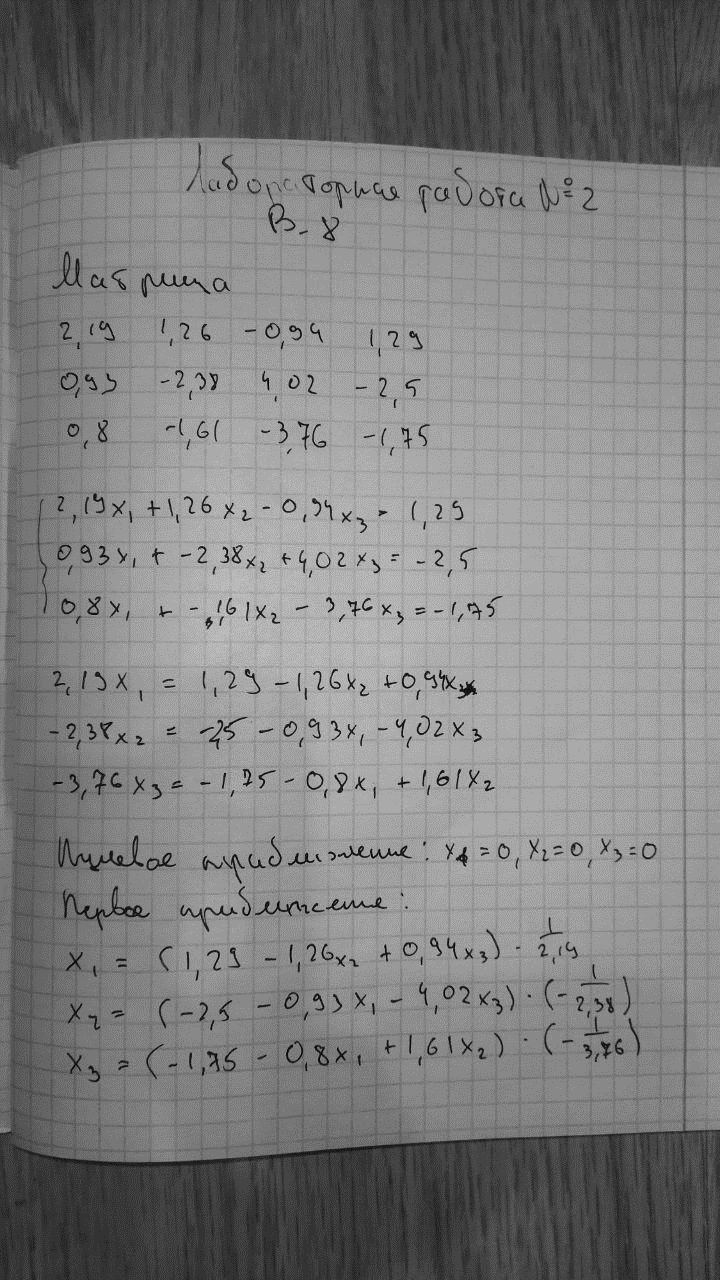 Лабораторная работа №2
В-8
Матрица
2,19 1,26 -0,94 1,29
0,93 -2,38 4,02 -2,5
0,8 -1,61 -3,76 -1,75
2,19x₁ + 1,26x₂ - 0,94x₃ = 1,29
0,93x₁ + -2,38x₂ + 4,02x₃ = -2,5
0,8x₁ + -1,61x₂ - 3,76x₃ = -1,75
2,19x₁ = 1,29 - 1,26x₂ + 0,94x₃
-2,38x₂ = -2,5 - 0,93x₁ - 4,02x₃
-3,76x₃ = -1,75 - 0,8x₁ + 1,61x₂
Нулевое приближение: x₁ = 0, x₂ = 0, x₃ = 0
Первое приближение:
x₁ = (1,29 - 1,26x₂ + 0,94x₃) · 1/2,19
x₂ = (-2,5 - 0,93x₁ - 4,02x₃) · (-1/2,38)
x₃ = (-1,75 - 0,8x₁ + 1,61x₂) · (-1/3,76)